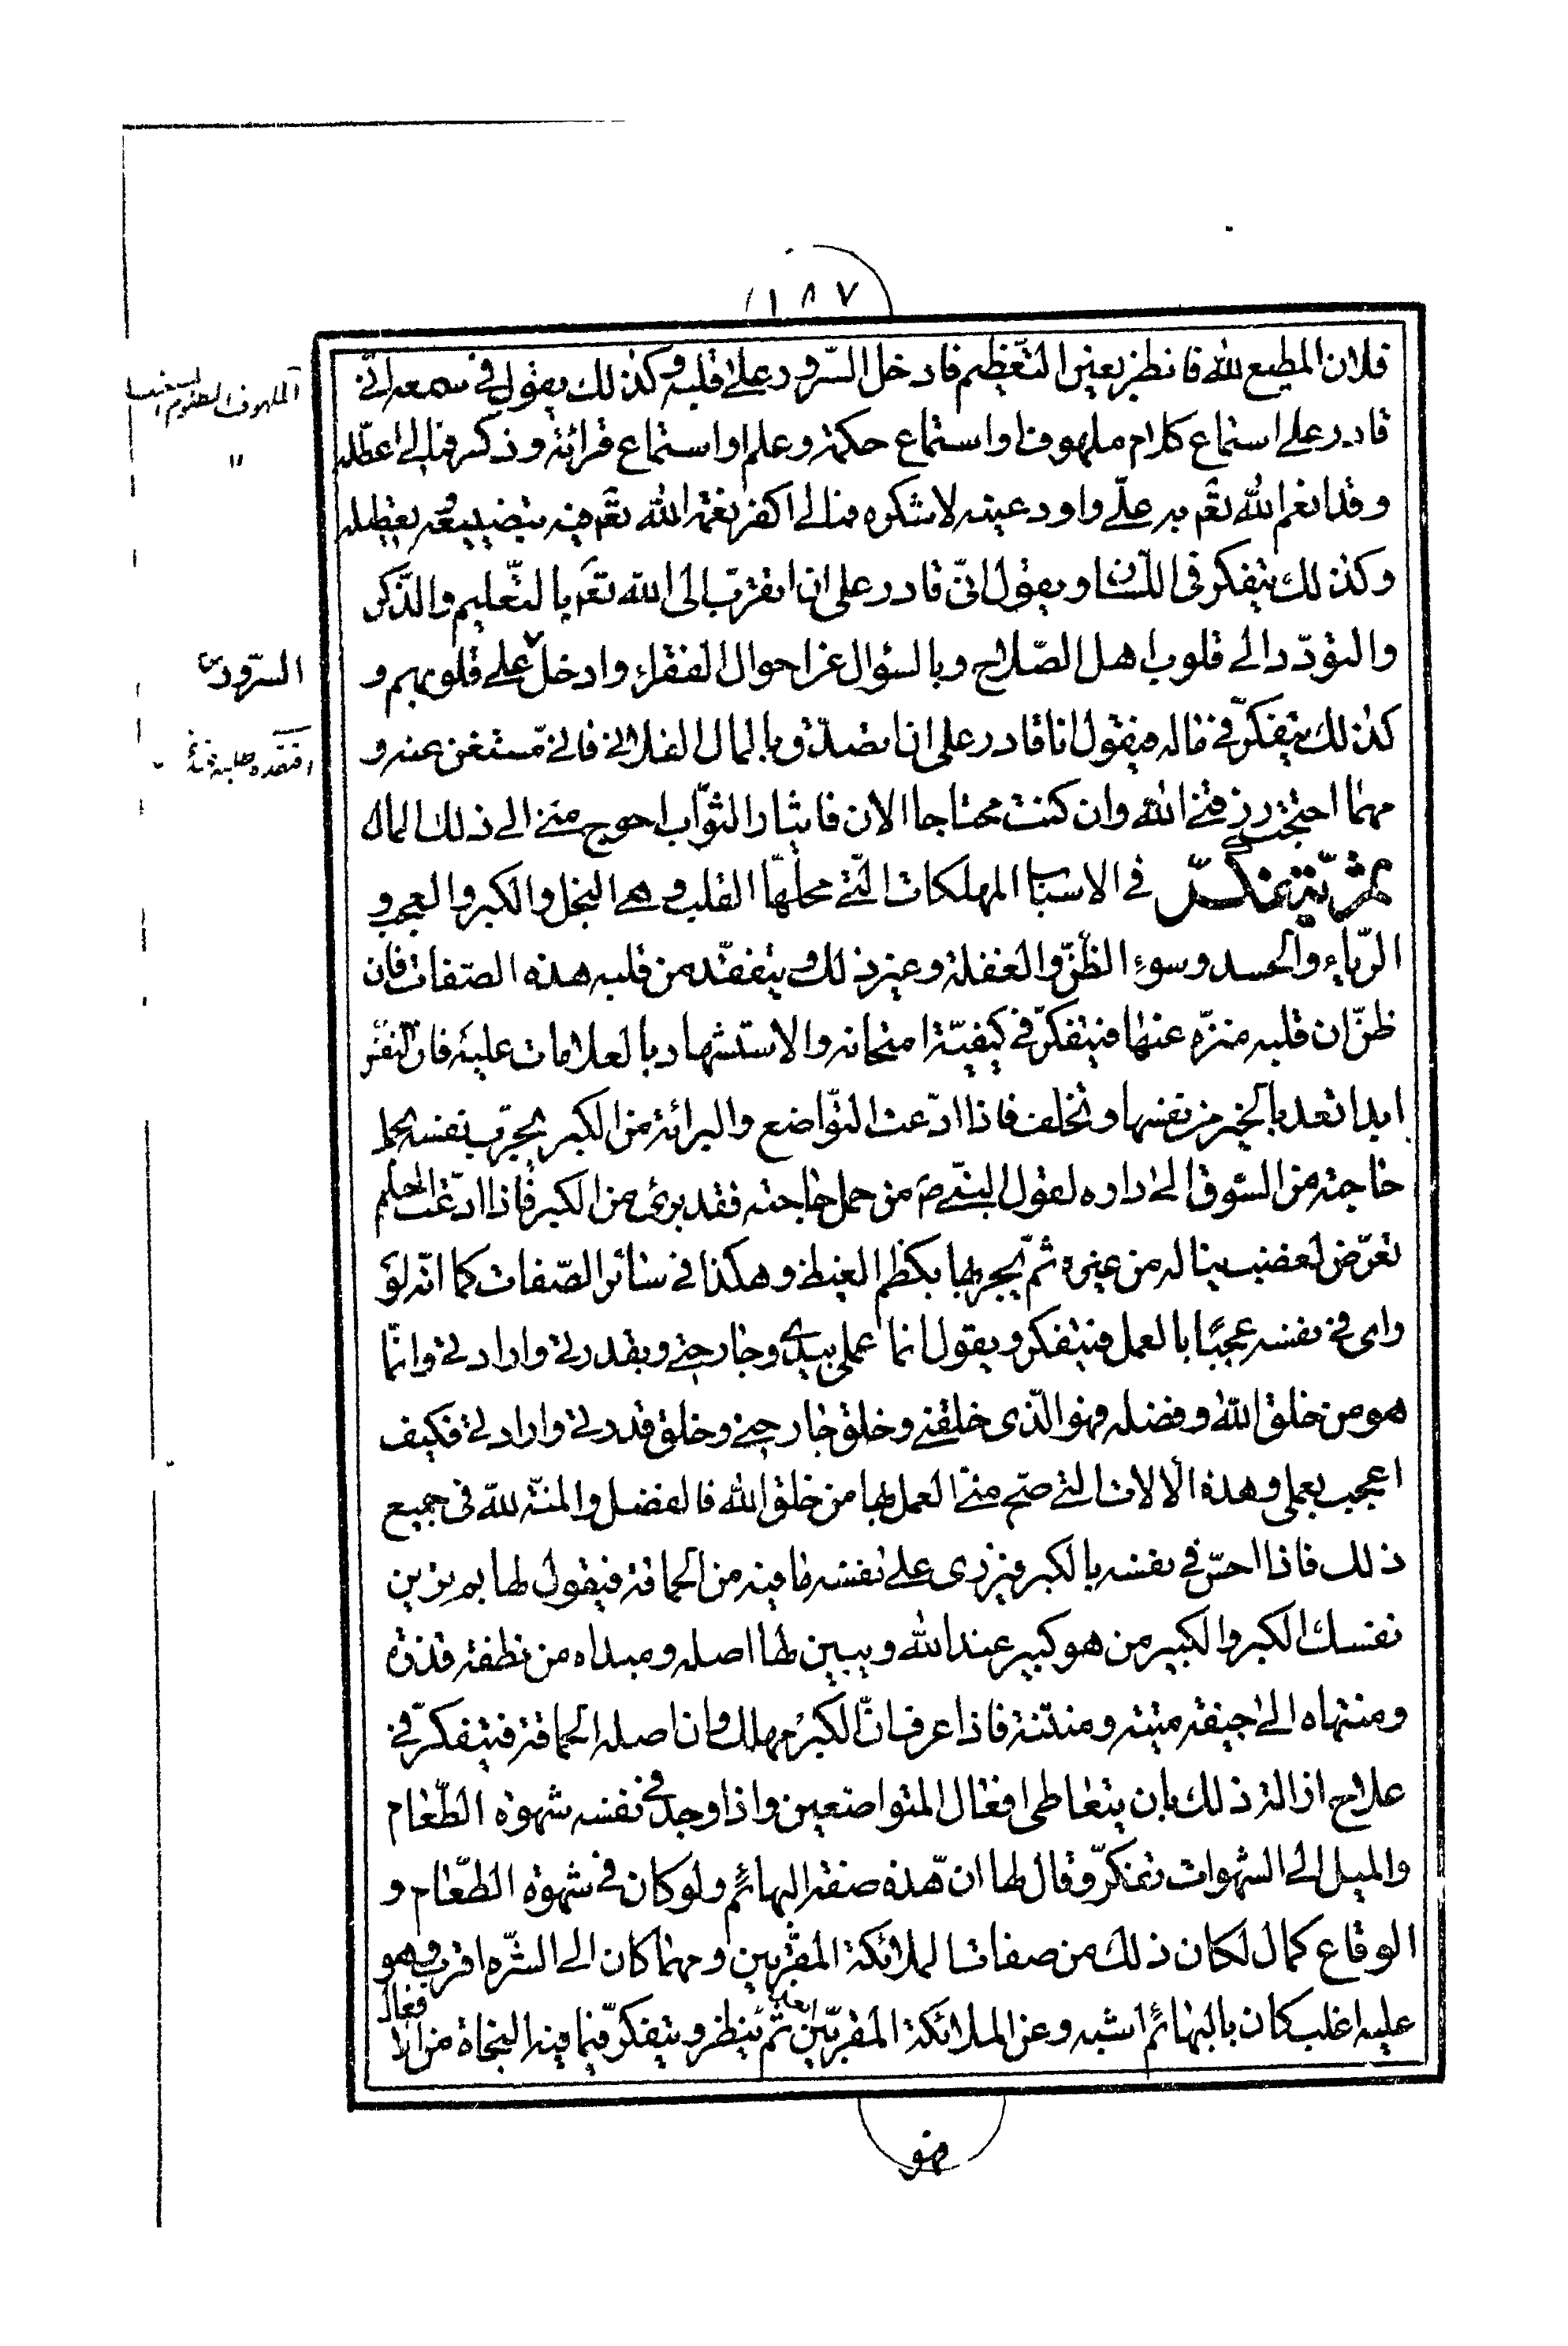 ١٨٧
فلان المطيع لله فانظر بعين التعظيم فادخل السّرور على قلبه وكذلك يقول في سمعه انّي
قادر على استماع كلام ملهوف او استماع حكمة وعلم او استماع قرائة وذكر فمالي اعطّله
وقد انعم الله تعم به علىّ واودعنيه لاشكره فمالي اكفر نعمة الله تعم فيه بتضييعه بتعطيله
وكذلك يتفكر في اللسان ويقول انّي قادر على ان اتقرّب الى الله تعم بالتّعليم والذّكر
والتودّد الى قلوب اهل الصّلاح وبالسؤال عن احوال الفقراء وادخل على قلوبهم و
كذلك يتفكّر في ماله فيقول انا قادر على ان اتصدّق بالمال الفلاني فانّي مستغن عنه و
مهما احتجت رزقني الله وان كنت محتاجا الان فايثار الثّواب احوج منّي الى ذلك المال
ثمّ يتفكّر في الاسباب المهلكات الّتي محلّها القلب وهي البخل والكبر والعجب و
الرّياء والحسد وسوء الظّنّ والغفلة وغير ذلك ويتفقّد من قلبه هذه الصّفات فان
ظنّ ان قلبه منزّه عنها فيتفكّر في كيفيّة امتحانه والاستشهاد بالعلامات عليه فان النفس
ابدا تعد بالخير من نفسها وتخلف فاذا ادّعت التّواضع والبرائة من الكبر يجرّب نفسه بحمل
حاجته من السّوق الى داره لقول النبيّ ص من حمل حاجته فقد برئ من الكبر فاذا ادّعت الحلم
تعرّض لغضب يناله من غيره ثمّ يجربها بكظم الغيظ وهكذا في سائر الصّفات كما انّه لو
راى في نفسه عجبًا بالعمل فيتفكر ويقول انما عملى بيدى وجارحتي وبقدرتي وارادتي وانّما
هو من خلق الله وفضله فهو الّذى خلقني وخلق جارحتي وخلق قدرتي وارادتي فكيف
اعجب بعملى وهذه الآلات الّتي صحّ منّي العمل بها من خلق الله فالفضل والمنّة لله في جميع
ذلك فاذا احسّ في نفسه بالكبر فيزرى على نفسه ما فيه من الحماقة فيقول لها بم يزين
نفسك الكبر والكبير من هو كبير عند الله ويبين لها اصله ومبداه من نطفة قذرة
ومنتهاه الى جيفة ميتة ومنتنة فاذا عرف انّ الكبر مهلك وان اصله الحماقة فيتفكّر في
علاج ازالة ذلك بان يتعاطى افعال المتواضعين واذا وجد في نفسه شهوة الطّعام
والميل الى الشهوات تفكّر وقال لها انّ هذه صفة البهائم ولو كان في شهوة الطّعام و
الوقاع كمال لكان ذلك من صفات الملائكة المقرّبين ومهما كان الى الشّره اقرب وهو
عليه اغلب كان بالبهائم اشبه وعن الملائكة المقربّين ابعد ثمّ ينظر ويتفكّر فيما فيه النجاة من الافعال
فهو
الملهوف المظلوم
السّرور